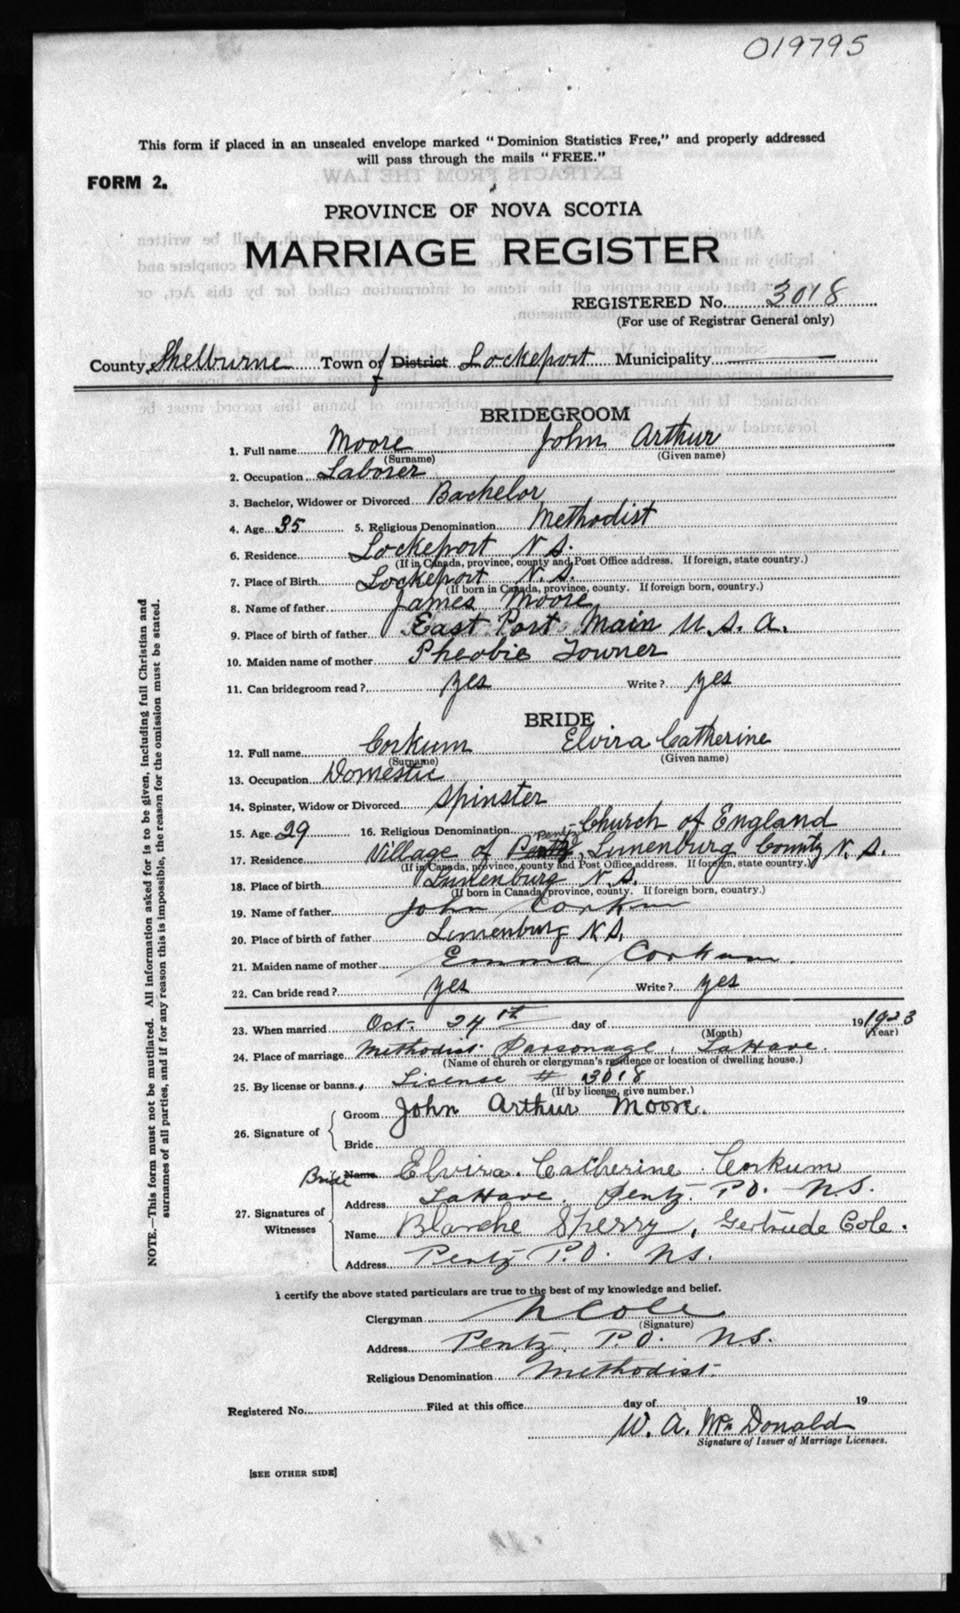 019795
This form if placed in an unsealed envelope marked "Dominion Statistics Free," and properly addressed
will pass through the mails "FREE."
FORM 2.
PROVINCE OF NOVA SCOTIA
MARRIAGE REGISTER
REGISTERED No. 3018
(For use of Registrar General only)
County Shelburne Town of District Lockeport Municipality
BRIDEGROOM
1. Full name Moore John Arthur
(Surname) (Given name)
2. Occupation Laborer
3. Bachelor, Widower or Divorced Bachelor
4. Age 35 5. Religious Denomination Methodist
6. Residence Lockeport N.S.
(If in Canada, province, county and Post Office address. If foreign, state country.)
7. Place of Birth Lockeport N.S.
(If born in Canada, province, county. If foreign born, country.)
8. Name of father James Moore
9. Place of birth of father East Port Main U.S.A.
10. Maiden name of mother Pheobie Towner
11. Can bridegroom read? yes Write? yes
BRIDE
12. Full name Corkum Elvira Catherine
(Surname) (Given name)
13. Occupation Domestic
14. Spinster, Widow or Divorced Spinster
15. Age 29 16. Religious Denomination Church of England
Pentz
17. Residence Village of Lunenburg County N.S.
(If in Canada, province, county and Post Office address. If foreign, state country.)
18. Place of birth Lunenburg N.S.
(If born in Canada, province, county. If foreign born, country.)
19. Name of father John Corkum
20. Place of birth of father Lunenburg N.S.
21. Maiden name of mother Emma Corkum.
22. Can bride read? yes Write? yes
23. When married Oct. 24th day of 19 1923
(Month) (Year)
24. Place of marriage Methodist Parsonage, LaHave.
(Name of church or clergyman's residence or location of dwelling house.)
25. By license or banns, License # 3018
(If by license, give number.)
26. Signature of Groom John Arthur Moore.
Bride
Bride Name Elvira Catherine Corkum
Address LaHave. Pentz. P.O. N.S.
27. Signatures of Witnesses
Name Blanche Sperry, Gertrude Cole.
Address Pentz P.O. N.S.
I certify the above stated particulars are true to the best of my knowledge and belief.
Clergyman N Cole
(Signature)
Address Pentz. P.O. N.S.
Religious Denomination Methodist.
Registered No. Filed at this office day of 19
W. A. McDonald
Signature of Issuer of Marriage Licenses.
[SEE OTHER SIDE]
NOTE.—This form must not be mutilated. All information asked for is to be given, including full Christian and
surnames of all parties, and if for any reason this is impossible, the reason for the omission must be stated.